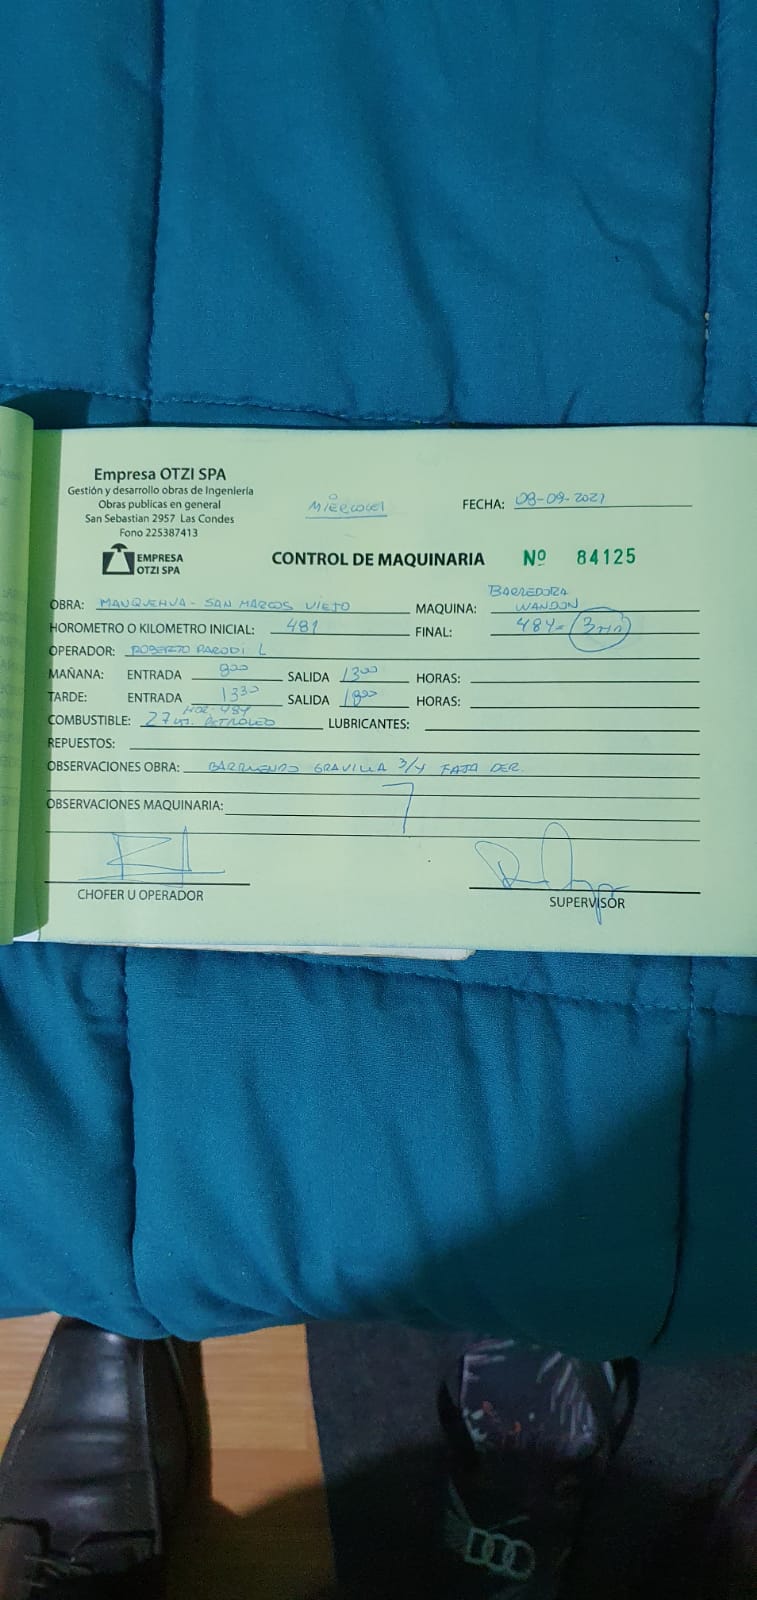 Empresa OTZI SPA
Gestión y desarrollo obras de Ingeniería
Obras publicas en general
San Sebastian 2957 Las Condes
Fono 225387413
EMPRESA
OTZI SPA
MIERCOLES
FECHA: 08-09-2021
CONTROL DE MAQUINARIA Nº 84125
OBRA: MANQUEHUA - SAN MARCOS VIEJO MAQUINA: BARREDORA
HOROMETRO O KILOMETRO INICIAL: 481 FINAL: 484= 3
OPERADOR: ROBERTO PARODI L
MAÑANA: ENTRADA 800 SALIDA 1300 HORAS:
TARDE: ENTRADA 1330 SALIDA 1800 HORAS:
HOR-484
COMBUSTIBLE: 27 PETROLEO LUBRICANTES:
REPUESTOS:
OBSERVACIONES OBRA: BARRIENDO GRAVILLA 3/4 FAJA DER.
OBSERVACIONES MAQUINARIA:
CHOFER U OPERADOR
SUPERVISOR